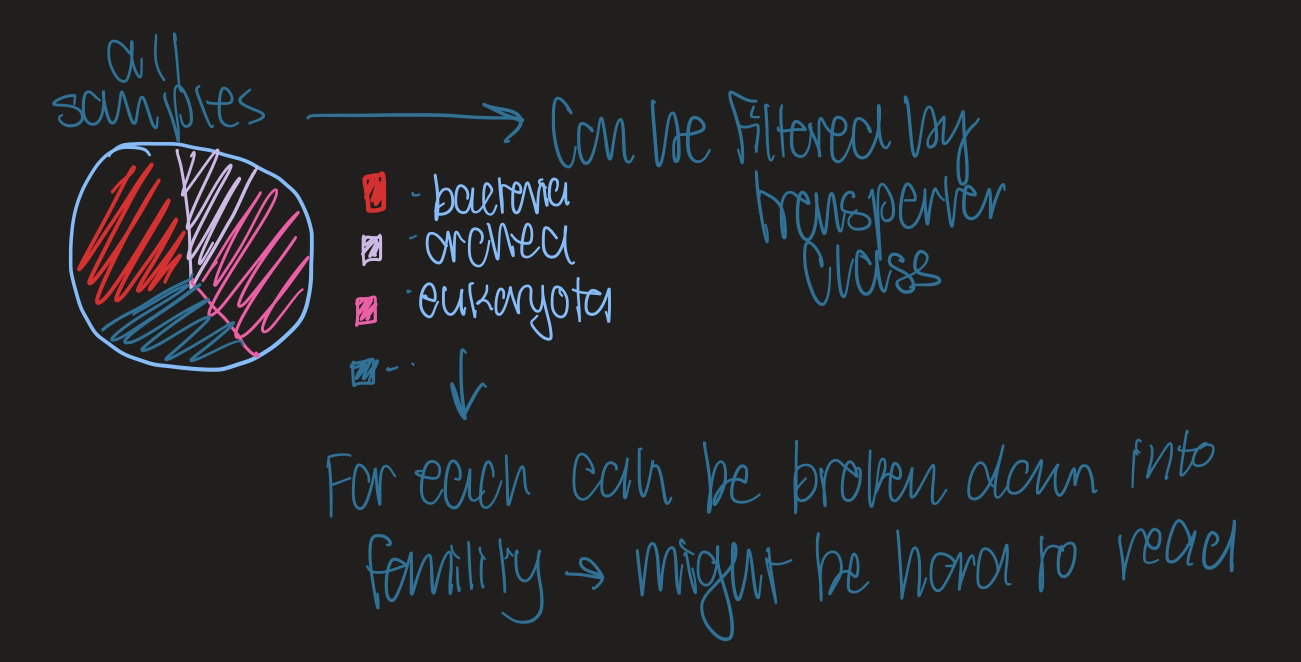 all
samples
Can be Filtered by
transperter
class
- bacteria
- archea
- eukaryota
- -
For each can be broken down into
familily → might be hard to read